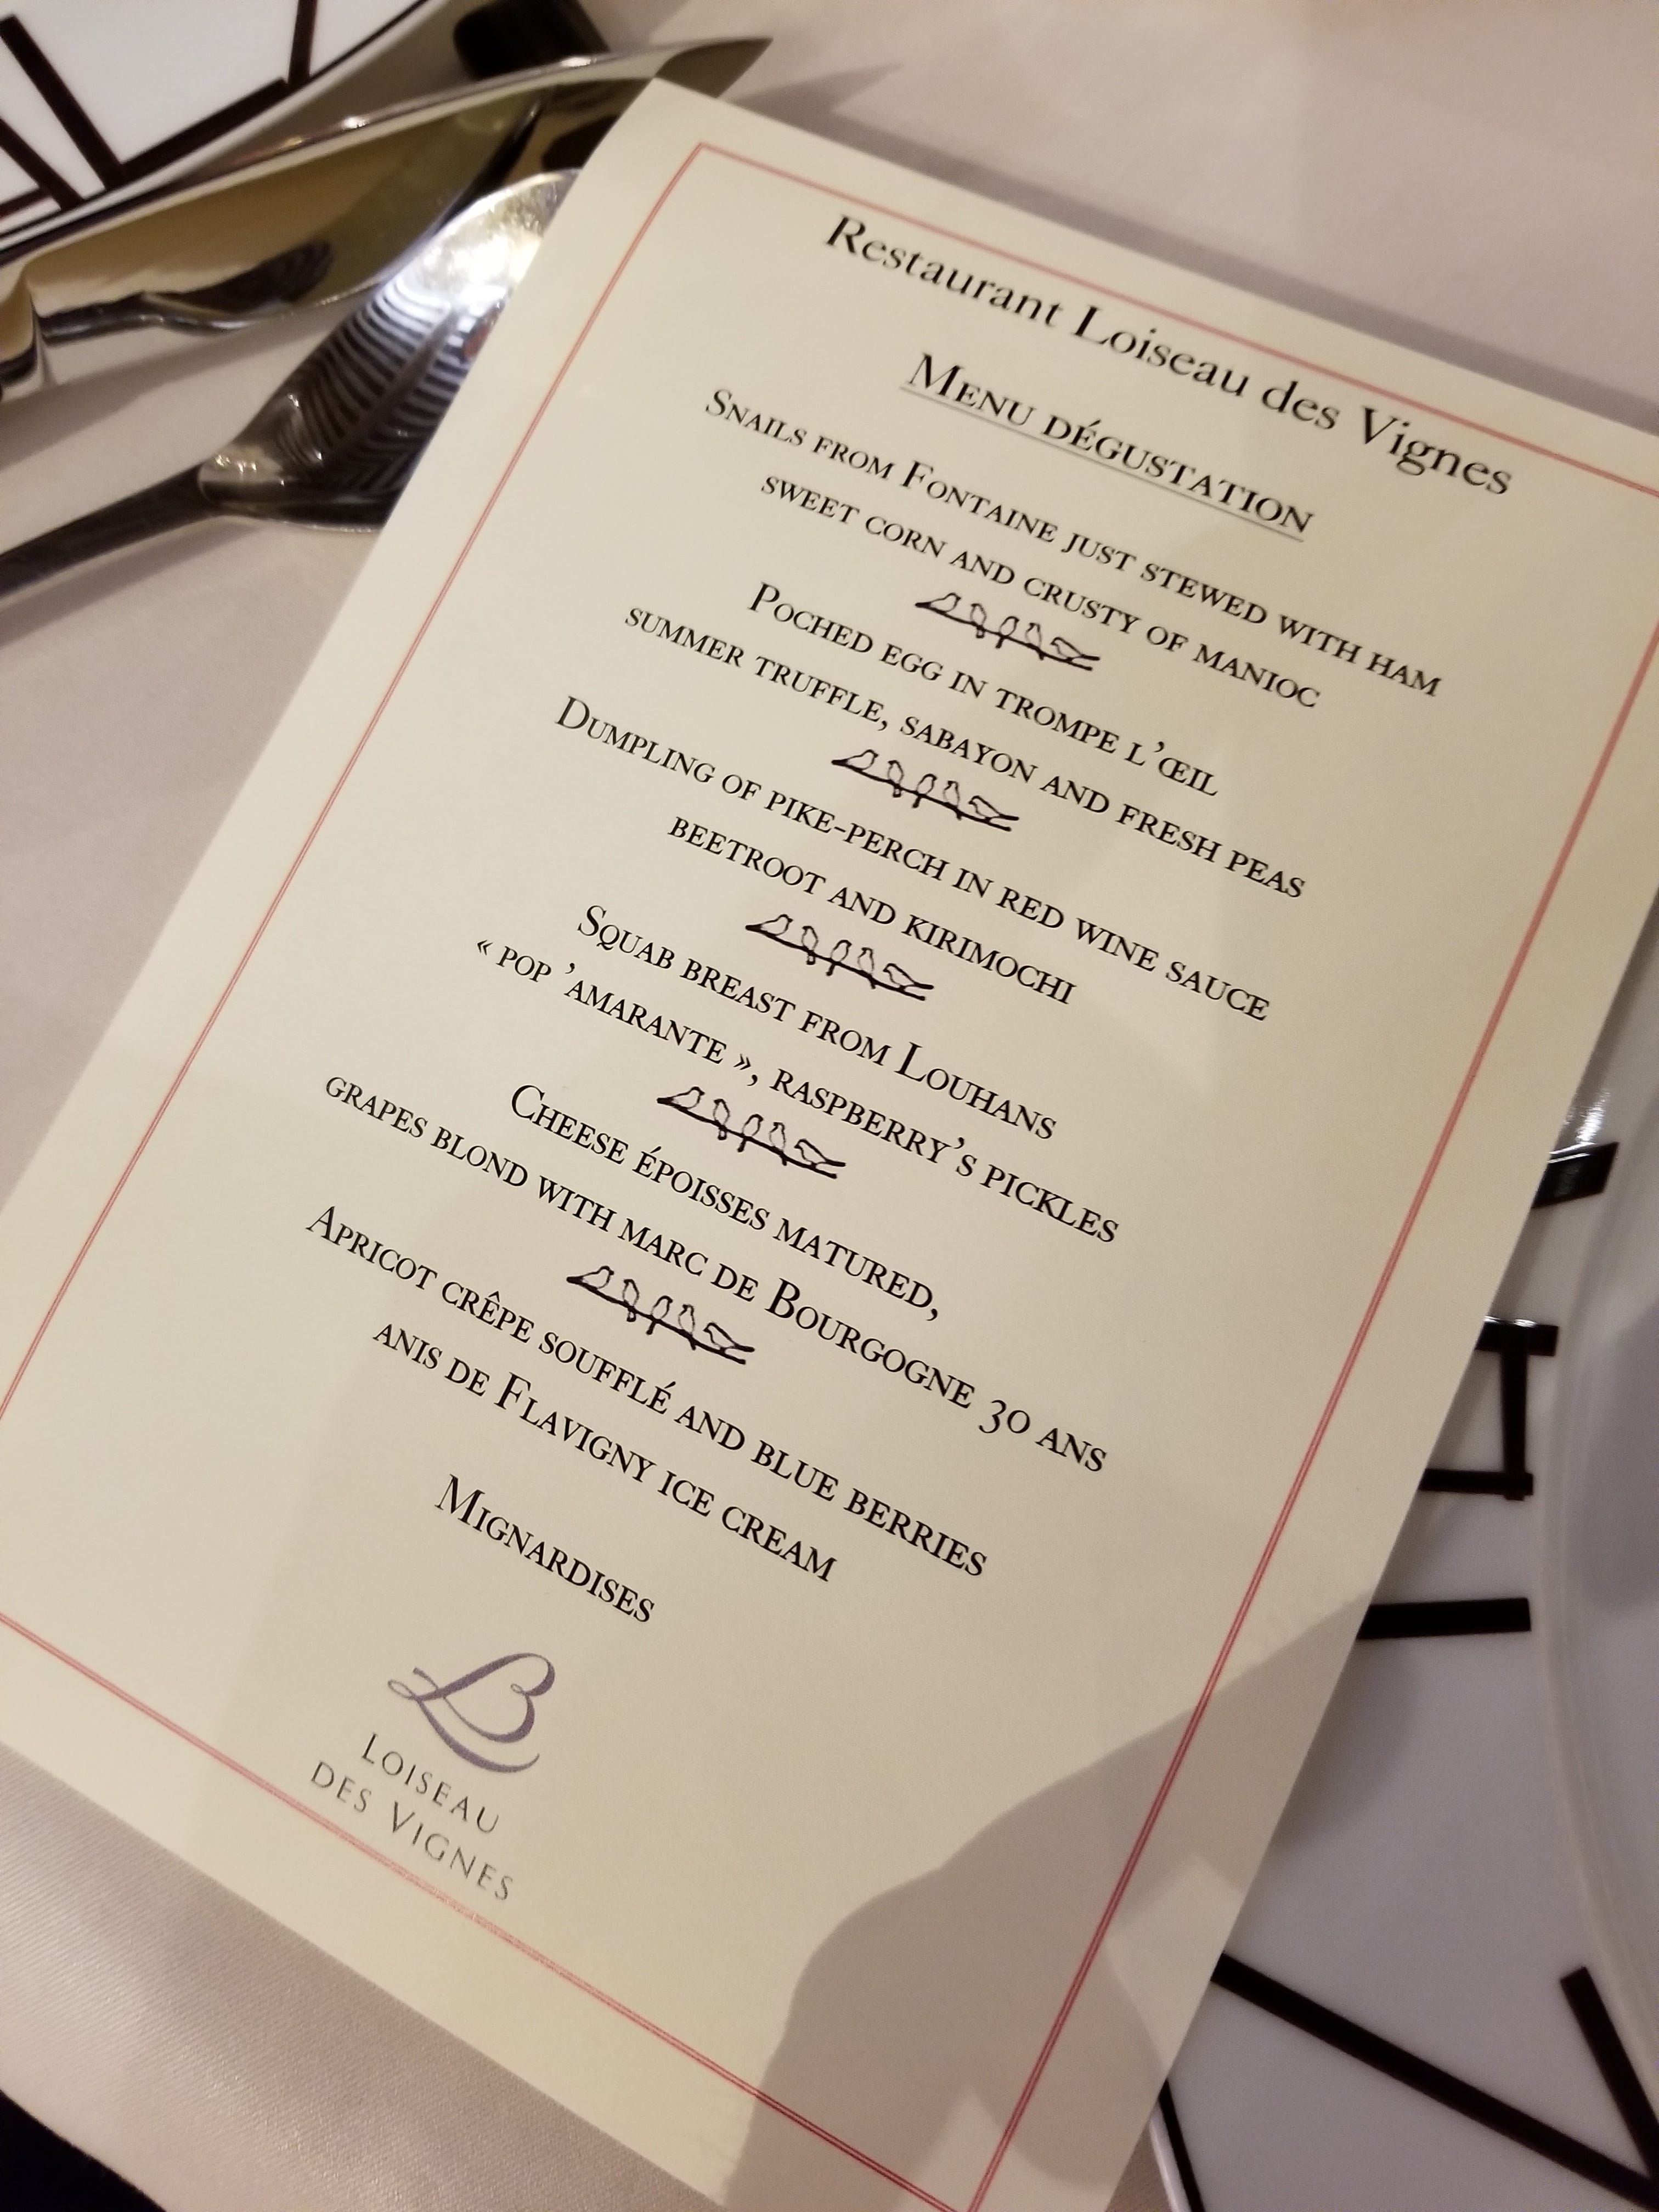 Restaurant Loiseau des Vignes
Menu dégustation
Snails from Fontaine just stewed with ham
sweet corn and crusty of manioc
Poched egg in trompe l'œil
summer truffle, sabayon and fresh peas
Dumpling of pike-perch in red wine sauce
beetroot and kirimochi
Squab breast from Louhans
« pop 'amarante », raspberry's pickles
Cheese époisses matured,
grapes blond with marc de Bourgogne 30 ans
Apricot crêpe soufflé and blue berries
anis de Flavigny ice cream
Mignardises
LB
LOISEAU
DES VIGNES